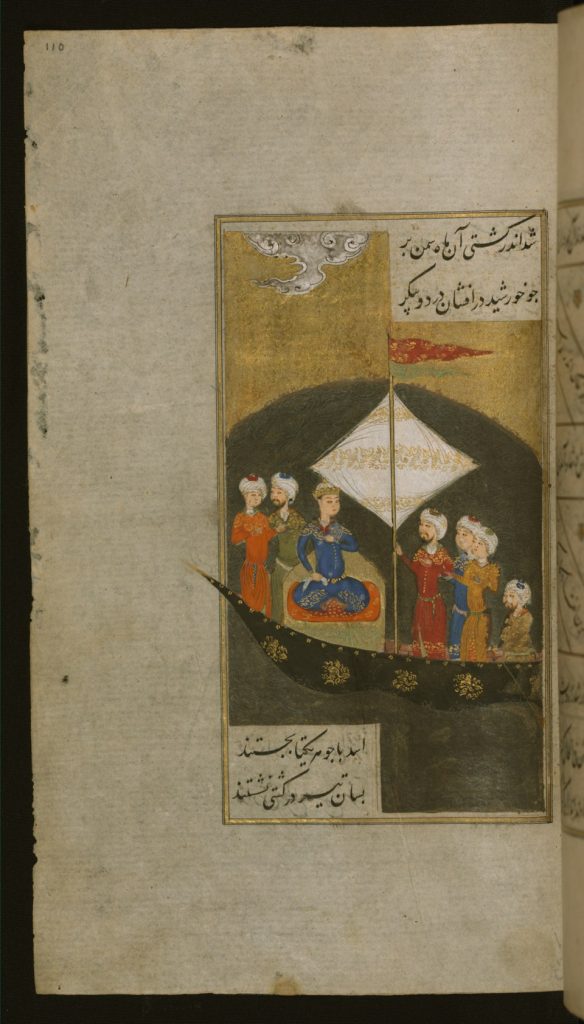 110
شد اندر کشتی آن ماه سمن بر
جو خورشید در افشان در دو پیکر
اسد با جوهر یکتا بجستند
بسان تیر در کشتی نشستند